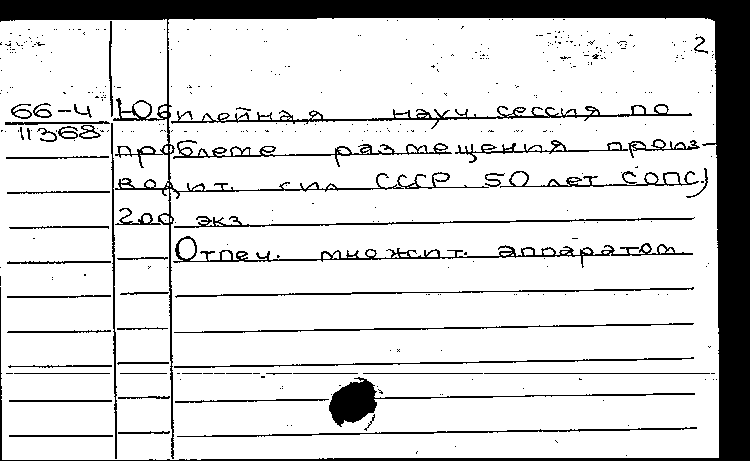 2
66-4 Юбилейная науч. сессия по
11368
проблеме размещения произ-
водит. сил СССР. 50 лет СОПС)
200 экз.
Отпеч. множит. аппаратом.